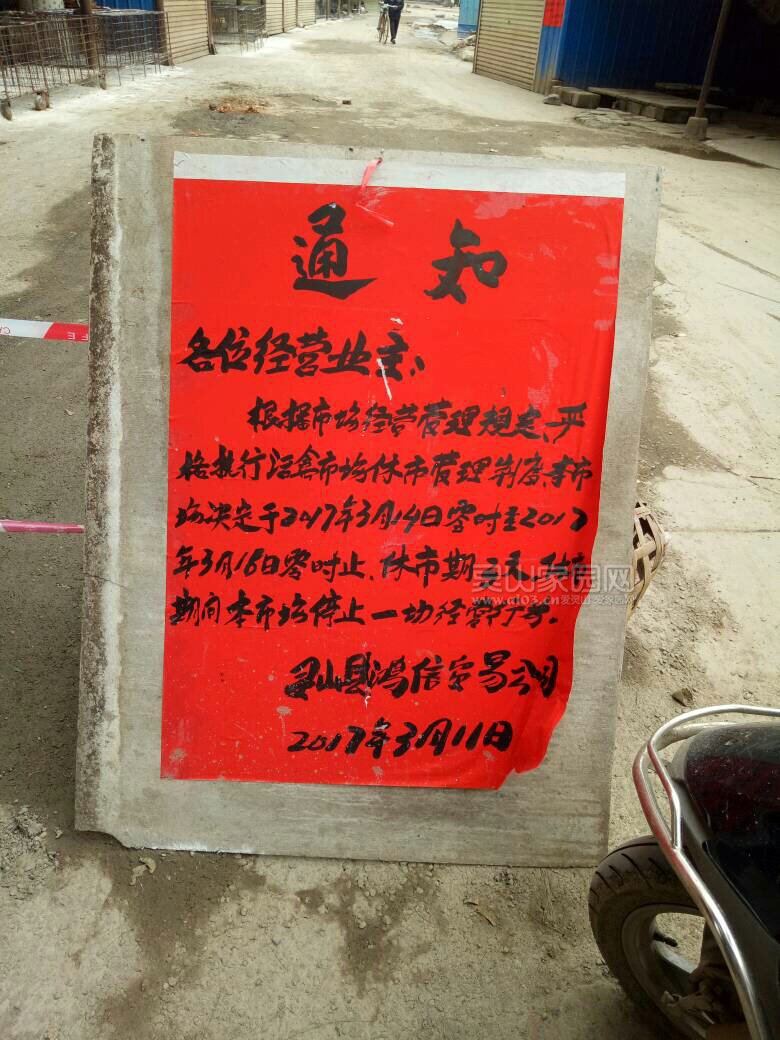 通知
各位经营业主：
根据市场经营管理规定、严
格执行活禽市场休市管理制度、本市
场决定于2017年3月14日零时至2017
年3月16日零时止、休市期二天、休市
期间本市场停止一切经营行为.
灵山县鸿信贸易公司
2017年3月11日
灵山家园网